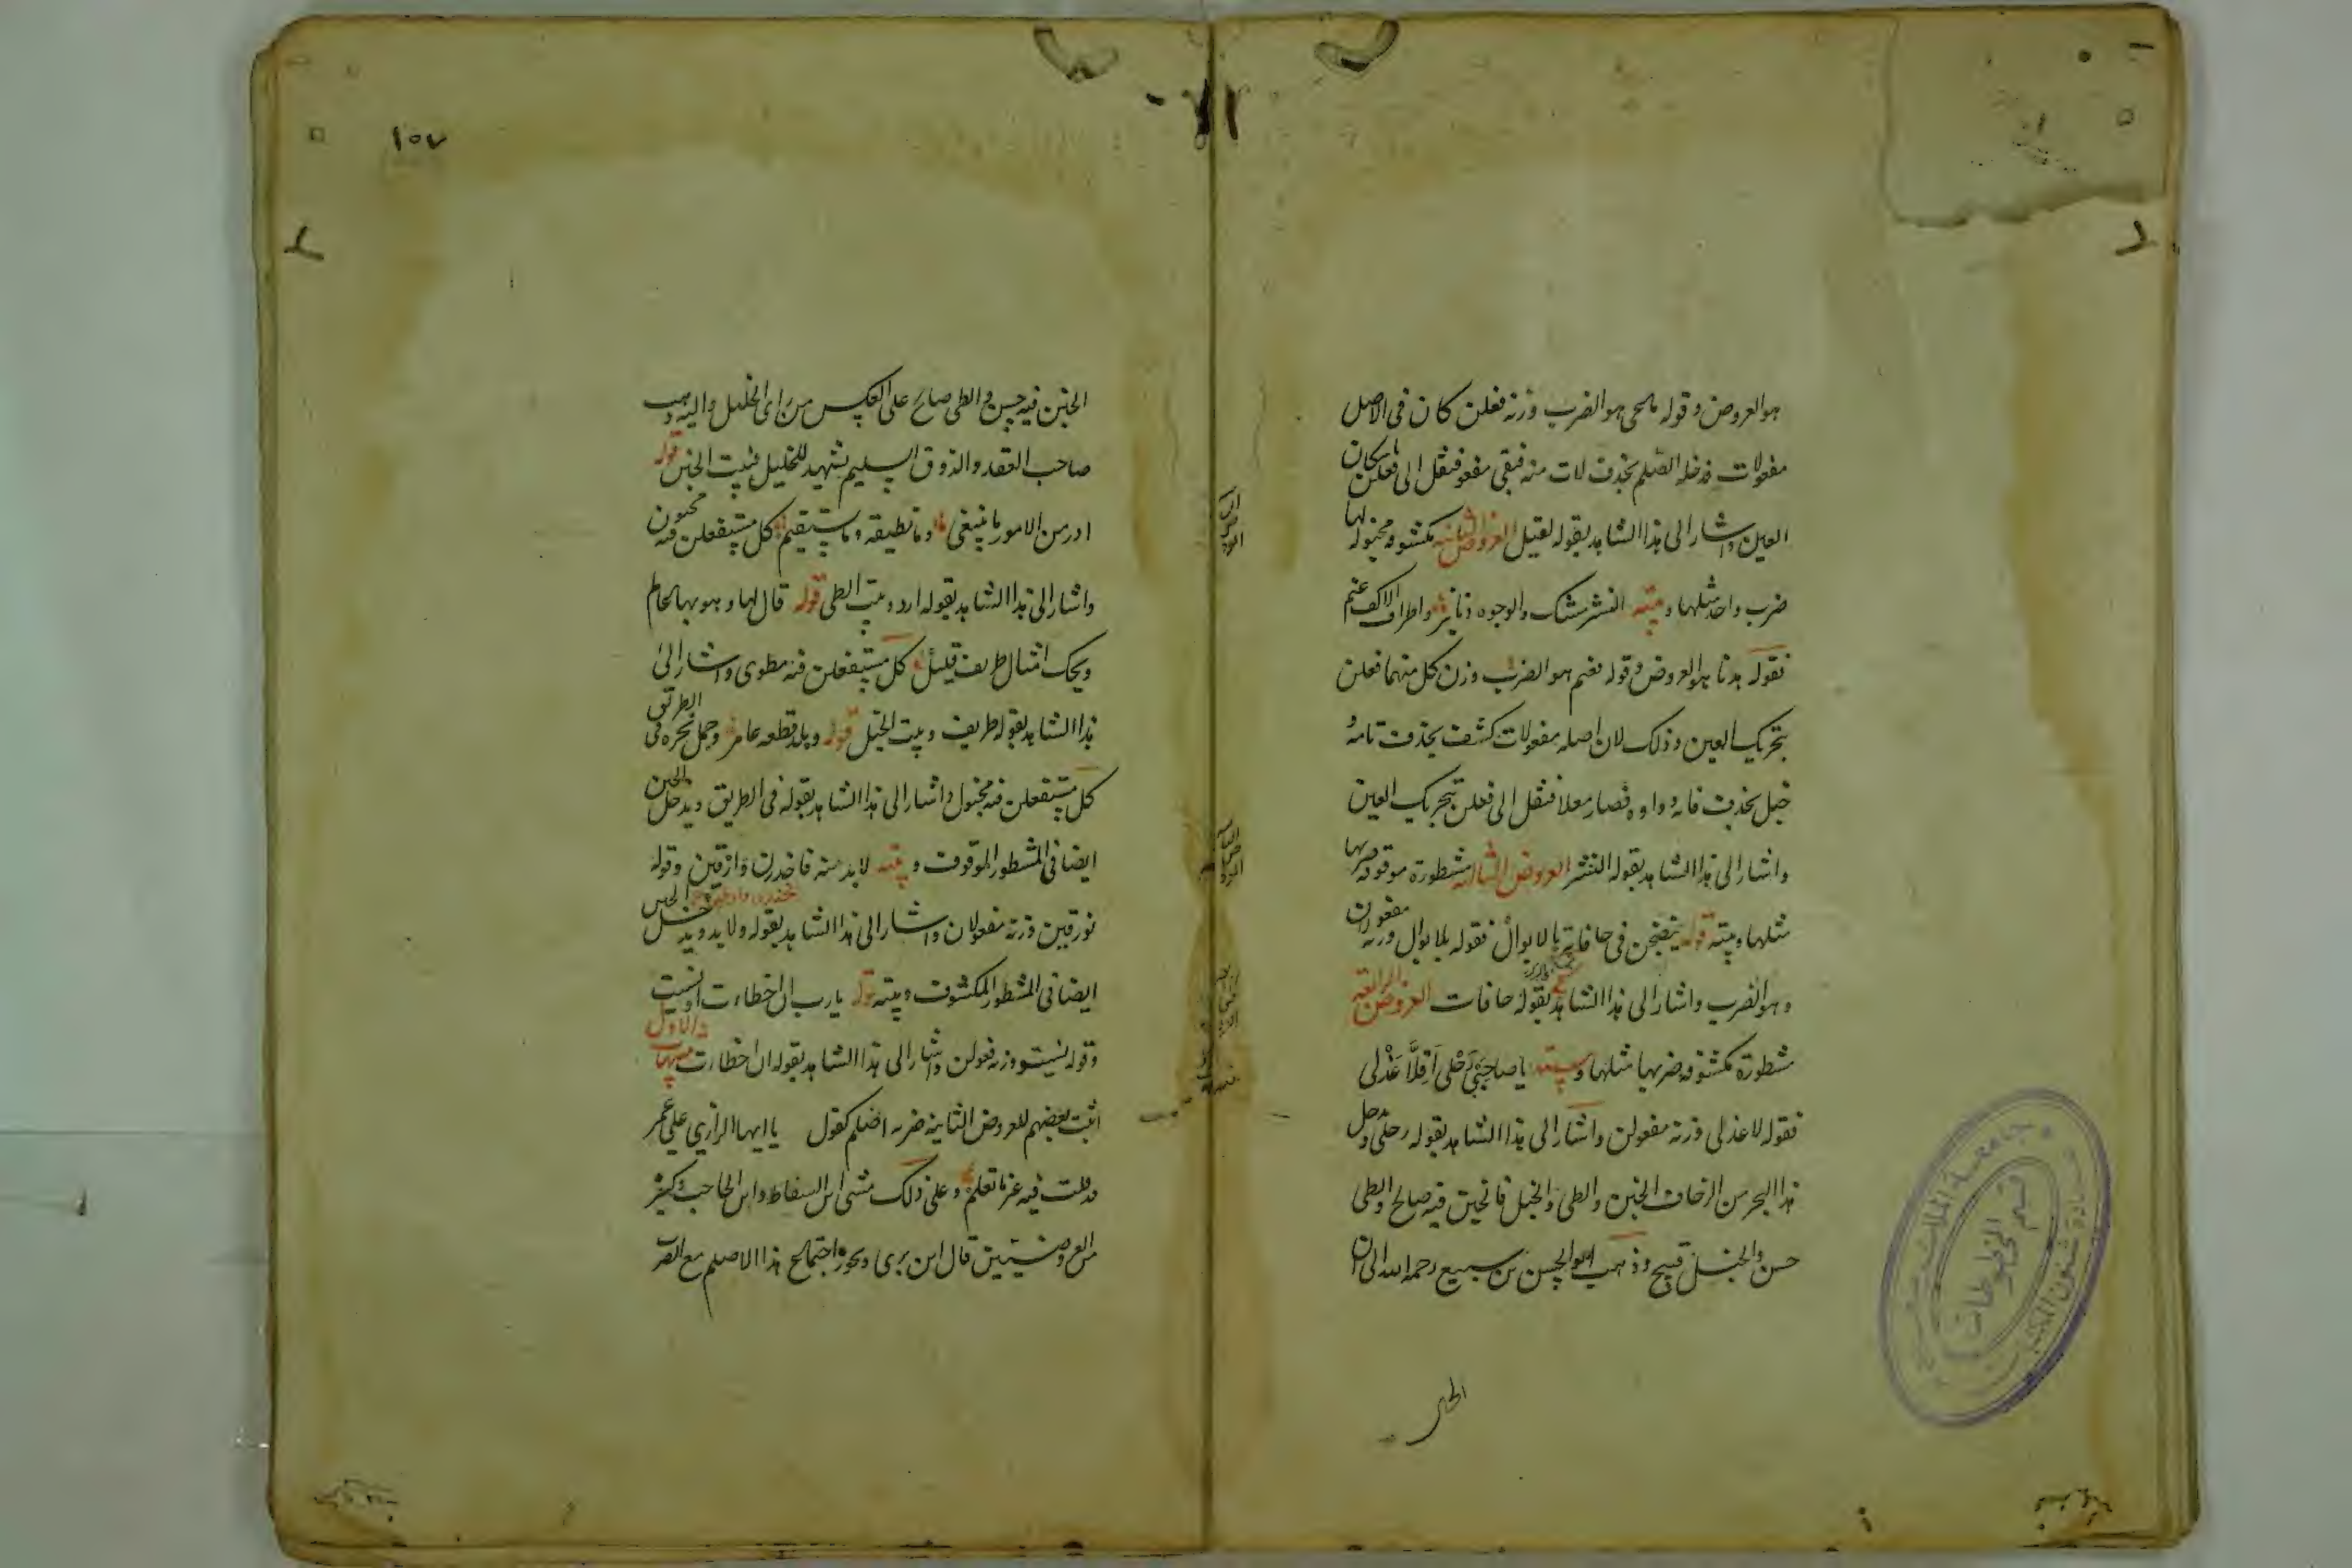 هو العروض وقوله ماحى هو الضرب وزنه فعلن كان فى الاصل
مفعولات فدخله الصلم بحذف لات منه فبقى مفعو فنقل الى فعلن باسكان
العين واشار الى هذا الشاهد بقوله لقيل العروض الثانيه مكشوفه مخبوله لها
ضرب واحد مثلها وبيته النشر مسك والوجوه دنانير واطراف الاكف عنم
فقوله هدنا هو العروض وقوله فعنم هو الضرب وزن كل منهما فعلن
بتحريك العين وذلك لان اصله مفعولات كشف بحذف تائه
خبل بحذف فائه وواوه فصار معلا فنقل الى فعلن بتحريك العين
واشار الى هذا الشاهد بقوله النشر العروض الثالثه مشطورة موقوفه ضربها
مثلها وبيته قوله ينضحن فى حافاته بالابوال فقوله بلابوال وزنه مفعولان
وهو الضرب واشار الى هذا الشاهد بقوله حافات العروض الرابعه
مشطورة مكشوفه ضربها مثلها وبيته يا صاحبى رحلى اقلا عذلى
فقوله لا عذلى وزنه مفعولن واشار الى هذا الشاهد بقوله رحلى ويدخل
هذا البحر من الزحاف الخبن والطى والخبل فالخبن فيه صالح والطى
حسن والخبل قبيح وذهب ابو الحسن بن سبيع رحمه الله الى ان
الخبن
١٥٧
الخبن فيه حسن والطى صالح على العكس من راى الخليل واليه ذهب
صاحب العقد والذوق السليم يشهد للخليل فبيت الخبن قوله
ارد من الامور ما ينبغى وما تطيقه وما يستقيم كل مستفعلن فيه مخبون
واشار الى هذا الشاهد بقوله ارد وبيت الطى قوله قال لها وهو بها عالم
ويحك امثال طريف قليل كل مستفعلن فيه مطوى واشار الى
هذا الشاهد بقوله طريف وبيت الخبل قوله وبلد قطعه عامر وجمل نحره فى الطريق
كل مستفعلن فيه مخبول واشار الى هذا الشاهد بقوله فى الطريق ويدخل الخبن
ايضا فى المشطور الموقوف وبيته لا بد منه فاحذرن وارقين وقوله
نورقين وزنه فعولان واشار الى هذا الشاهد بقوله ولا بد ويدخل الخبن
ايضا فى المشطور المكشوف وبيته قوله يا رب ان اخطات او نسيت
وقوله نسيت وزنه فعولن واشار الى هذا الشاهد بقوله ان اخطات
اثبت بعضهم للعروض الثانيه ضربه اصلم كقول يا ايها الزارى على عمر
قد قلت فيه غير ما تعلم وعلى ذلك مشى ابن السقاط وابن الحاجب وكثير
من العروضيين قال ابن برى ويجوز اجتماع هذا الاصلم مع الضرب
جامعة الملك
قسم المخطوطات
عمادة شئون المكتبات